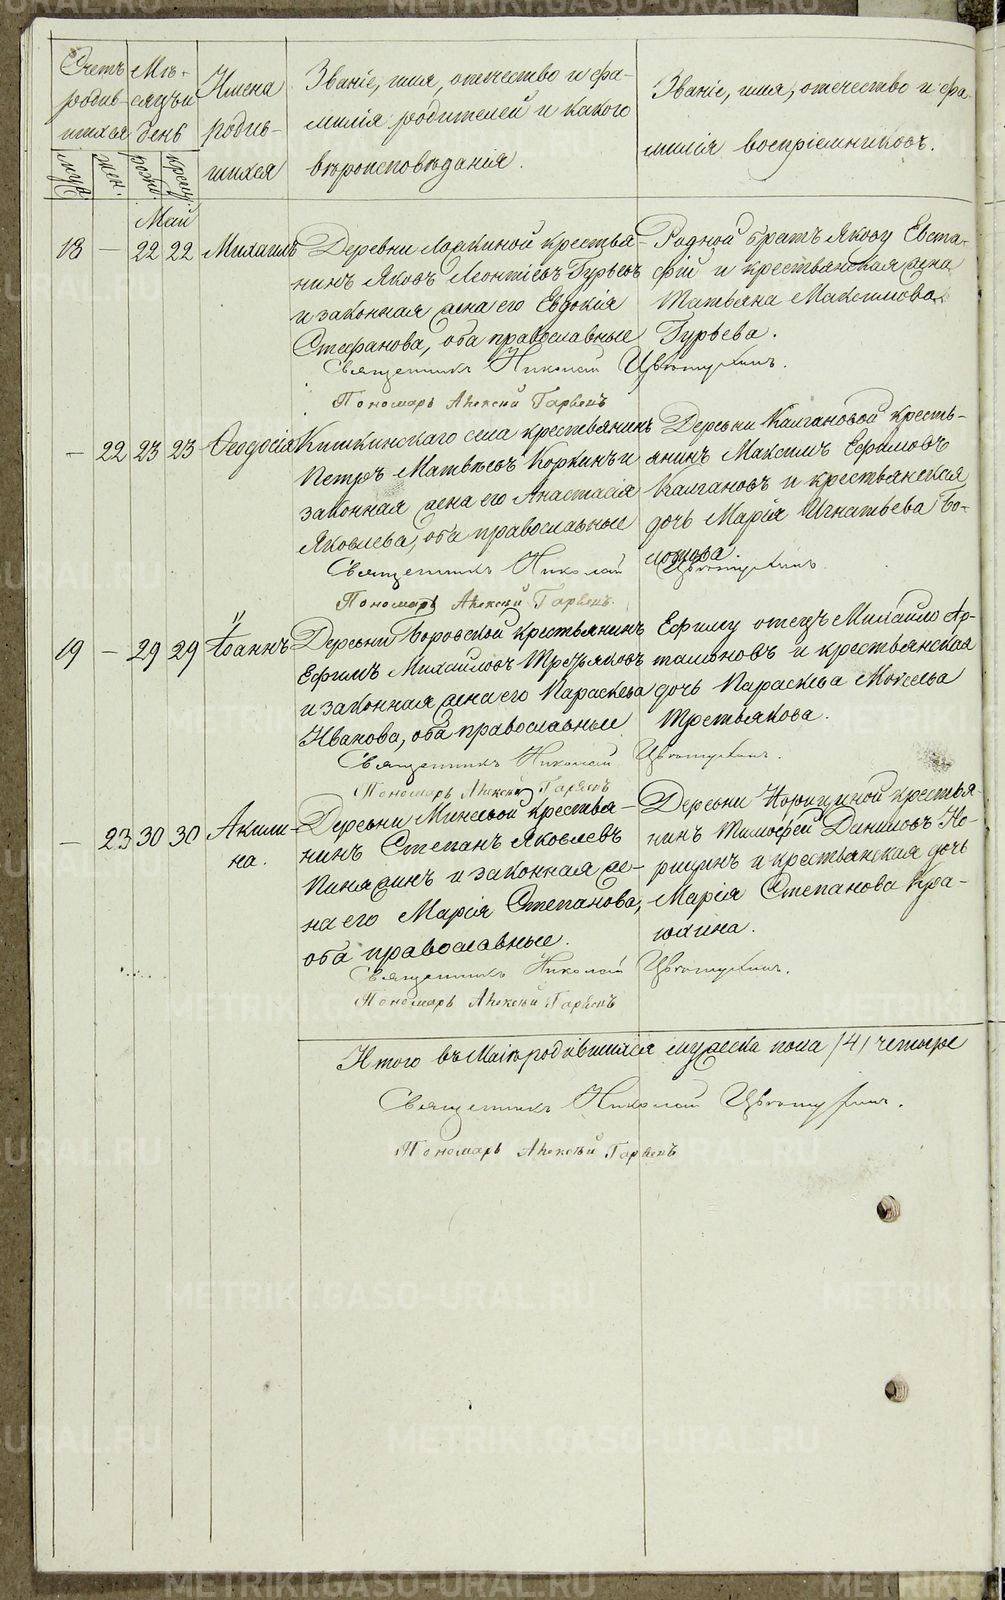 Счетъ родив шихся
Мѣ- сяцъ и день
Имена родив- шихся
Званіе, имя, отчество и фа-
милія родителей и какого
вѣроисповѣданія.
Званіе, имя, отчество и фа-
милія воспріемниковъ.
муж. жен. рожд. крещ.
Май
18 — 22 22 Михаилъ
Деревни крестья-
нинъ Яковъ Леонтьевъ Гурьевъ
и законная жена его Евдокія
Стефанова, оба православные
Родной братъ Якову Евста-
фій и крестьянская жена
Татьяна Максимова
Гурьева.
Священникъ Николай
Пономарь Алексѣй
— 22 23 23 Ѳеодосія
Кишкинскаго села крестьянинъ
Петръ Матвѣевъ Коркинъ и
законная жена его Анастасія
Яковлева, оба православные
Деревни Калгановой кресть-
янинъ Максимъ Ефимовъ
Калгановъ и крестьянская
дочь Марія Игнатьева Бо-
Священникъ Николай
Пономарь Алексѣй
19 — 29 29 Іоаннъ
Деревни Боровской крестьянинъ
Ефимъ Михайловъ Третьяковъ
и законная жена его Параскева
Иванова, оба православные
Ефиму отецъ Михайло Ар-
тамоновъ и крестьянская
дочь Параскева Моисеева
Третьякова.
Священникъ Николай
Пономарь Алексѣй
— 23 30 30 Акили-
на.
Деревни Минеевой крестья-
нинъ Степанъ Яковлевъ
Пинягинъ и законная же-
на его Марія Степанова,
оба православные.
Деревни крестья-
нинъ Тимофей Даниловъ Не-
рицинъ и крестьянская дочь
Марія Степанова
Священникъ Николай
Пономарь Алексѣй
Итого въ Маіѣ родившихся мужеска пола /4/ четыре
Священникъ Николай
Пономарь Алексѣй
METRIKI.GASO-URAL.RU